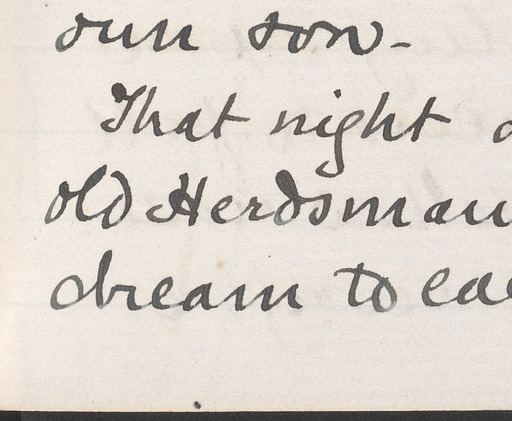 own son -
That night
old Herdsman
dream to